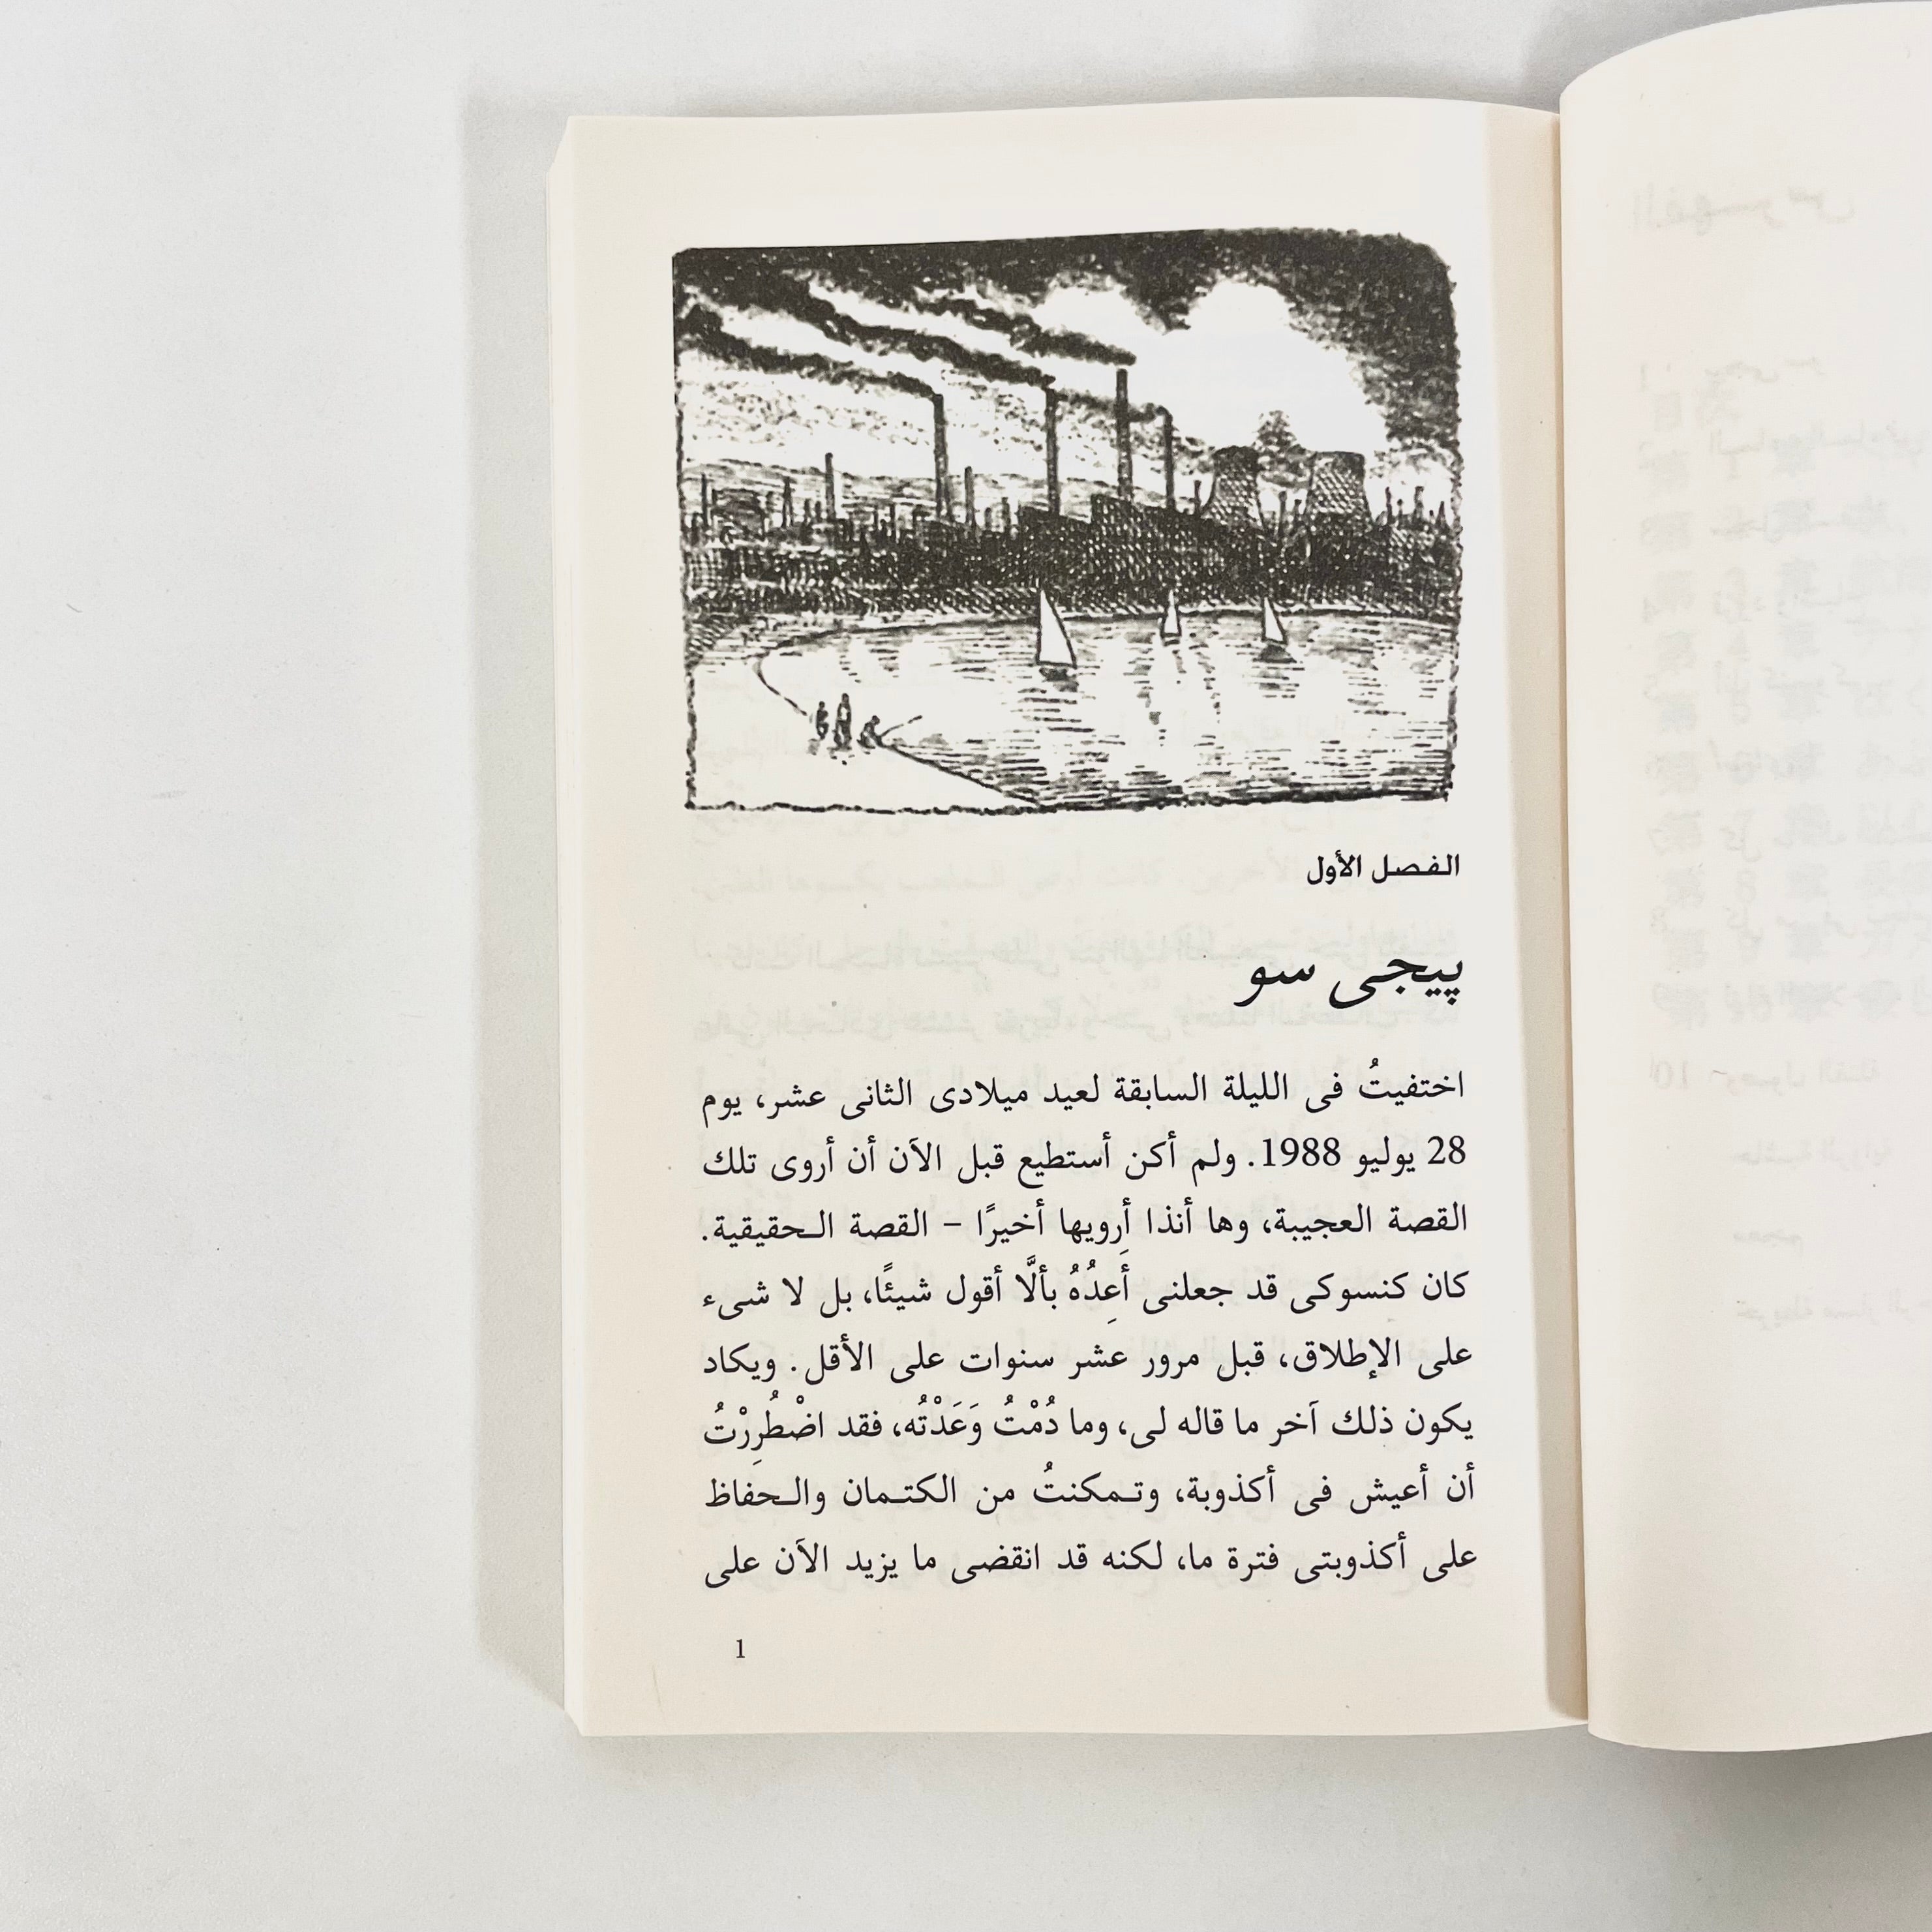 الفصل الأول
پيجى سو
اختفيتُ فى الليلة السابقة لعيد ميلادى الثانى عشر، يوم
28 يوليو 1988. ولم أكن أستطيع قبل الآن أن أروى تلك
القصة العجيبة، وها أنذا أرويها أخيرًا – القصة الحقيقية.
كان كنسوكى قد جعلنى أَعِدُهُ بألَّا أقول شيئًا، بل لا شىء
على الإطلاق، قبل مرور عشر سنوات على الأقل. ويكاد
يكون ذلك آخر ما قاله لى، وما دُمْتُ وَعَدْتُه، فقد اضْطُرِرْتُ
أن أعيش فى أكذوبة، وتمكنتُ من الكتمان والحفاظ
على أكذوبتى فترة ما، لكنه قد انقضى ما يزيد الآن على
1